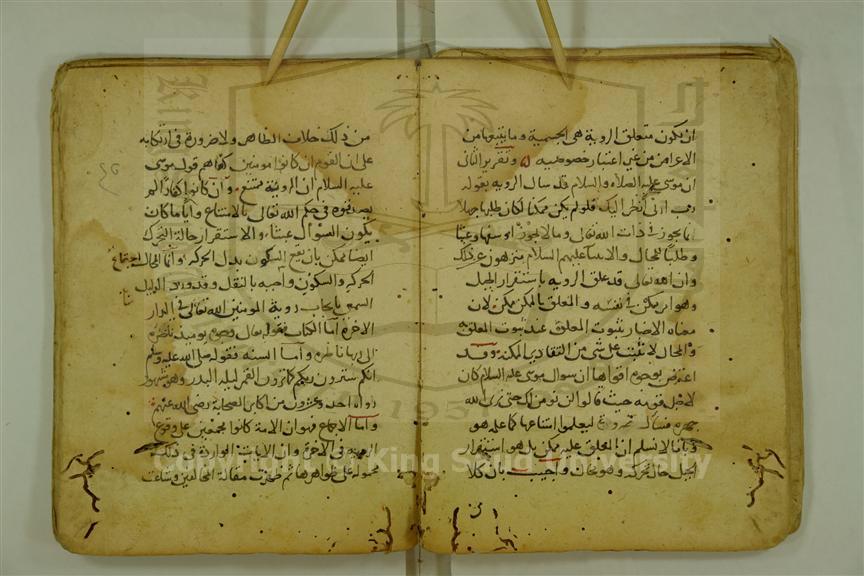 ان يكون متعلق الروية هي الجسمية وما يتبعها من
الاعراض من غير اعتبار خصوصيه وتقرير الثاني
ان موسى عليه الصلاه والسلام قد سال الرويه بقوله
رب ارني أنظر اليك فلو لم يكن ممكنا لكان طلبها جهلا
بما يجوز في ذات الله تعالى وما لا يجوز او سفها وعبثا
وطلبا للمحال والانبياء عليهم السلام منزهون عن ذلك
وان الله تعالى قد علق الروية باستقرار الجبل
وهو امر ممكن في نفسه والمعلق بالممكن ممكن لان
معناه الاخبار بثبوت المعلق عند ثبوت المعلق به
والمحال لا يثبت على شي من التقادير الممكنة وقد
اعترض بوجوه اقواها ان سوال موسى عليه السلام كان
لاجل قومه حيث قالوا لن نومن لك حتى نرى الله
جهرة فسال ليعلموا امتناعها كما علمه هو
وبانا لا نسلم ان المعلق عليه ممكن بل هو استقرار
الجبل حال تحركه وهو محال واجيب بان كلا
من ذلك خلاف الظاهر ولا ضرورة في ارتكابه
على ان القوم ان كانوا مومنين كفاهم قول موسى
عليه السلام ان الروية ممتنعة وان كانوا كفارا لم
يصدقوه في حكم الله تعالى بالامتناع وايا ما كان
يكون السوال عبثا والاستقرار حالة التحرك
ايضا ممكن بان يقع السكون بدل الحركه وانما المحال
اجتماع
الحركه والسكون واجبه بالنقل وقد ورد الدليل
السمعي بايجاب روية المومنين الله تعالى في الدار
الاخرة اما الكتاب فقوله تعالى وجوه يوميذ ناضرة
الى ربها ناظره واما السنه فقوله صلى الله عليه وسلم
انكم سترون ربكم كما ترون القمر ليله البدر وهو مشهور
رواه احد وعشرون من اكابر الصحابة رضي الله عنهم
واما الاجماع فهو ان الامة كانوا مجمعين على وقوع
الرويه في الاخرة وان الايات الواردة في ذلك
محمولة على ظواهرها ثم ظهرت مقالة المخالفين وشاعت
King Saud University